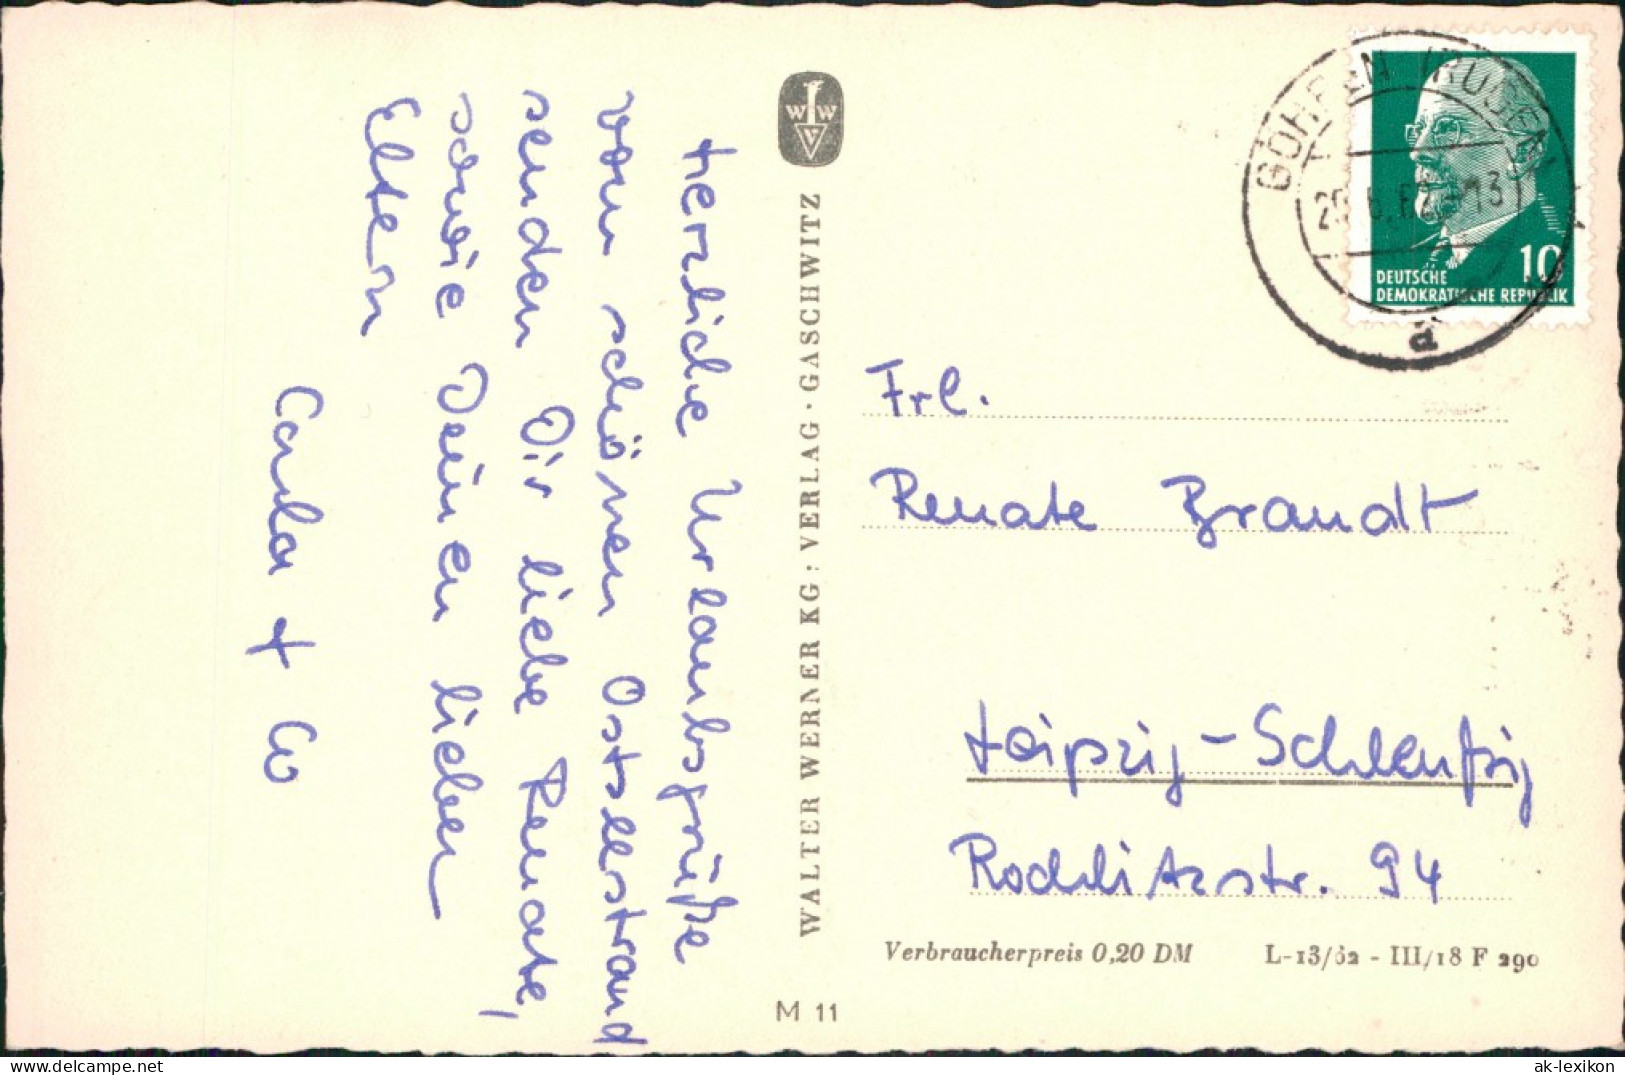 Herzliche Urlaubsgrüße
vom schönen Ostseestrand
senden Dir liebe Renate,
sowie Deinen lieben
Eltern
Carla +
W W
V
WALTER WERNER KG · VERLAG · GASCHWITZ
GÖHREN (RÜGEN)
6.62.-13
a
10
DEUTSCHE
DEMOKRATISCHE REPUBLIK
Frl.
Renate Brandt
Leipzig-Schleußig
Rochlitzstr. 94
Verbraucherpreis 0,20 DM L-13/62 - III/18 F 290
M 11
delcampe.net
ak-lexikon